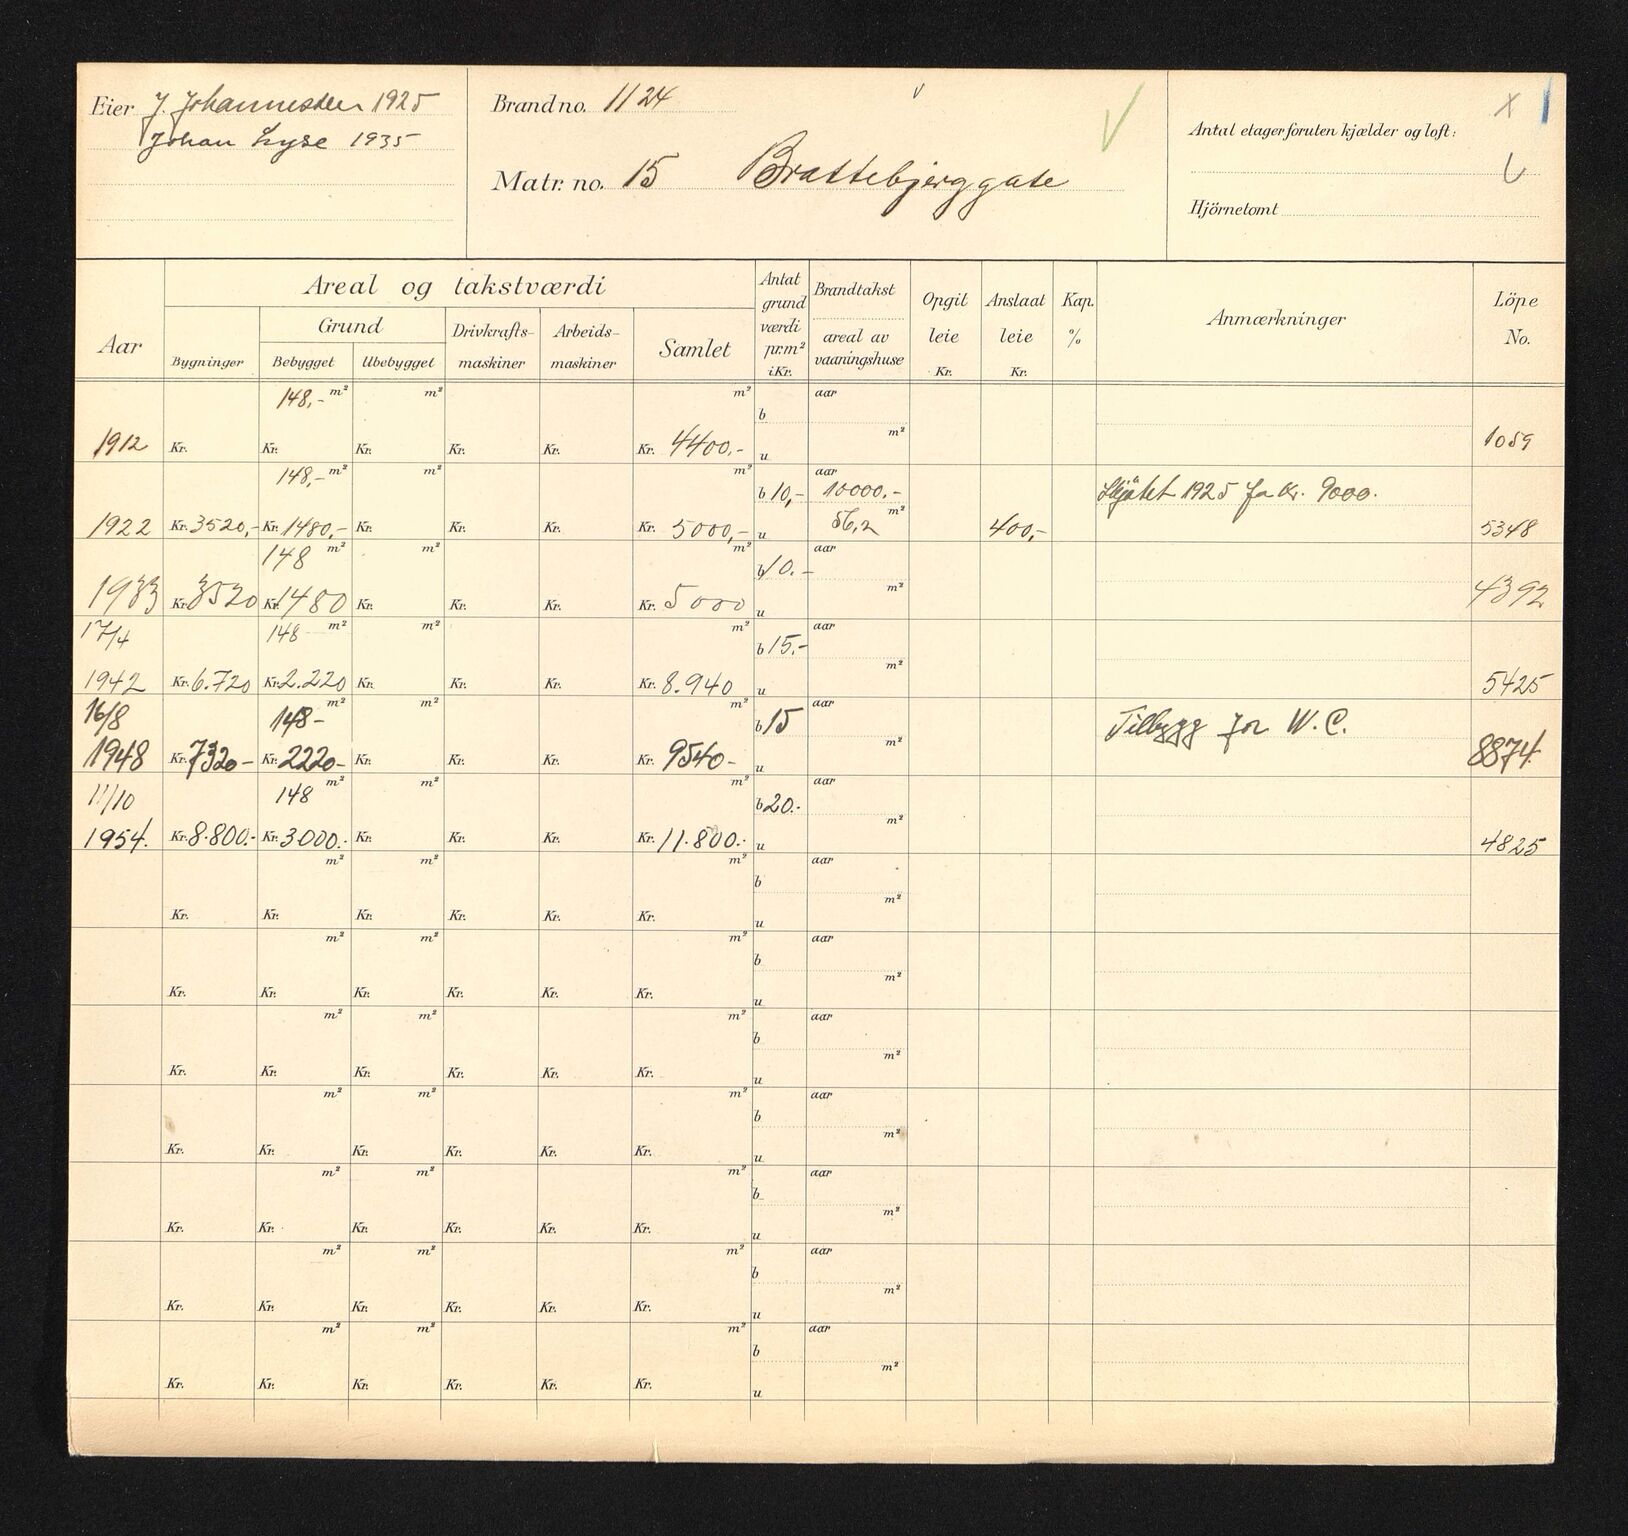 Eier J. Johannessen 1925
Johan Lyse 1935
Brandno. 1124
Matr. no. 15 Brattebjerggate
Antal etager foruten kjælder og loft:
Hjörnetomt
Aar
Areal og takstværdi
Bygninger
Grund
Bebygget Ubebygget
Drivkrafts-
maskiner
Arbeids-
maskiner
Samlet
Antat
grund
værdi
pr.m²
i Kr.
Brandtakst
areal av
vaaningshuse
Opgit
leie
Kr.
Anslaat
leie
Kr.
Kap.
%
Anmærkninger
Löpe
No.
148,- m² m² m² b aar
m²
1912 Kr. Kr. Kr. Kr. Kr. Kr. 4400.- u 1059
148,- m² m² m² b 10,- aar 10000.- Skjötet 1925 for Kr. 9000.
m²
1922 Kr. 3520,- Kr. 1480,- Kr. Kr. Kr. Kr. 5000,- u 56,2 400,- 5348
148 m² m² m² b 10.- aar
m²
1933 Kr. 3520 Kr. 1480 Kr. Kr. Kr. Kr. 5000 u 4392
17/4 148 m² m² m² b 15.- aar
m²
1942 Kr. 6.720 Kr. 2.220 Kr. Kr. Kr. Kr. 8.940 u 5425
16/8 148- m² m² m² b 15 aar Tilbygg for W.C.
m²
1948 Kr. 7320- Kr. 2220- Kr. Kr. Kr. Kr. 9540- u 8874
11/10 148 m² m² m² b 20.- aar
m²
1954. Kr. 8.800.- Kr. 3000.- Kr. Kr. Kr. Kr. 11.800.- u 4825
m² m² m² b aar
m²
Kr. Kr. Kr. Kr. Kr. Kr. u
m² m² m² b aar
m²
Kr. Kr. Kr. Kr. Kr. Kr. u
m² m² m² b aar
m²
Kr. Kr. Kr. Kr. Kr. Kr. u
m² m² m² b aar
m²
Kr. Kr. Kr. Kr. Kr. Kr. u
m² m² m² b aar
m²
Kr. Kr. Kr. Kr. Kr. Kr. u
m² m² m² b aar
m²
Kr. Kr. Kr. Kr. Kr. Kr. u
m² m² m² b aar
m²
Kr. Kr. Kr. Kr. Kr. Kr. u